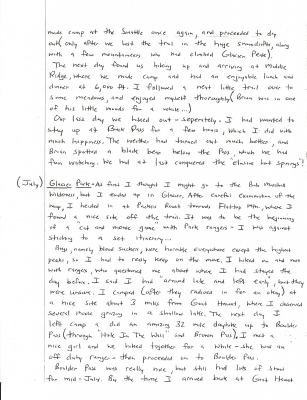 made camp at the Saddle once again, and proceeded to dry
out, only after we lost the trail in the huge snowfields, along
with a few mountaineers who had climbed Glacier Peak).
The next day found us hiking up and arriving at Middle
Ridge, where we made camp and had an enjoyable lunch and
dinner at 6,200 ft. I followed a nest little trail over to
some meadows, and enjoyed myself thoroughly (Brian was in one
of his little moods for a while...)
Our last day we hiked out - seperately. I had wanted to
stay up at Pass for a few hours, which I did with
much happiness. The weather had turned out much better, and
Brian spotted a black bear below the Pass, which we had
fun watching. We had at last conquered the "elusive hot springs"!
(July) Glacier Park - At first I thought I might go to the Bob Marshall
Wilderness, but I ended up in Glacier. After careful examination of the
map, I headed in at Packers Roost towards Flattop Mtn, where I
found a nice site off the trail. It was to be the beginning
of a "cat and mouse game" with Park rangers - I was against
sticking to a set itinerary...
Bugs, namely black suckers, were horrible everywhere except the highest
peaks, so I had to really keep on the move. I hiked on and met
with rangers, who questioned me about where I had stayed the
day before. I said I had around late and left early, but they
were serious. I camped (after they radioed in for an okay) at
a nice site about 3 miles from Goat Haunt, where I observed
several moose grazing in a shallow lake. The next day I
left camp & did an amazing 32 mile dayhike up to Boulder
Pass (through "Hole In The Wall" and Brown Pass), I met a
nice girl and we hiked together for a while - she was an
off duty ranger - then proceeded on to Boulder Pass.
Boulder Pass was really nice, but still had lots of snow
for mid-July. By the time I arrived back at Goat Haunt